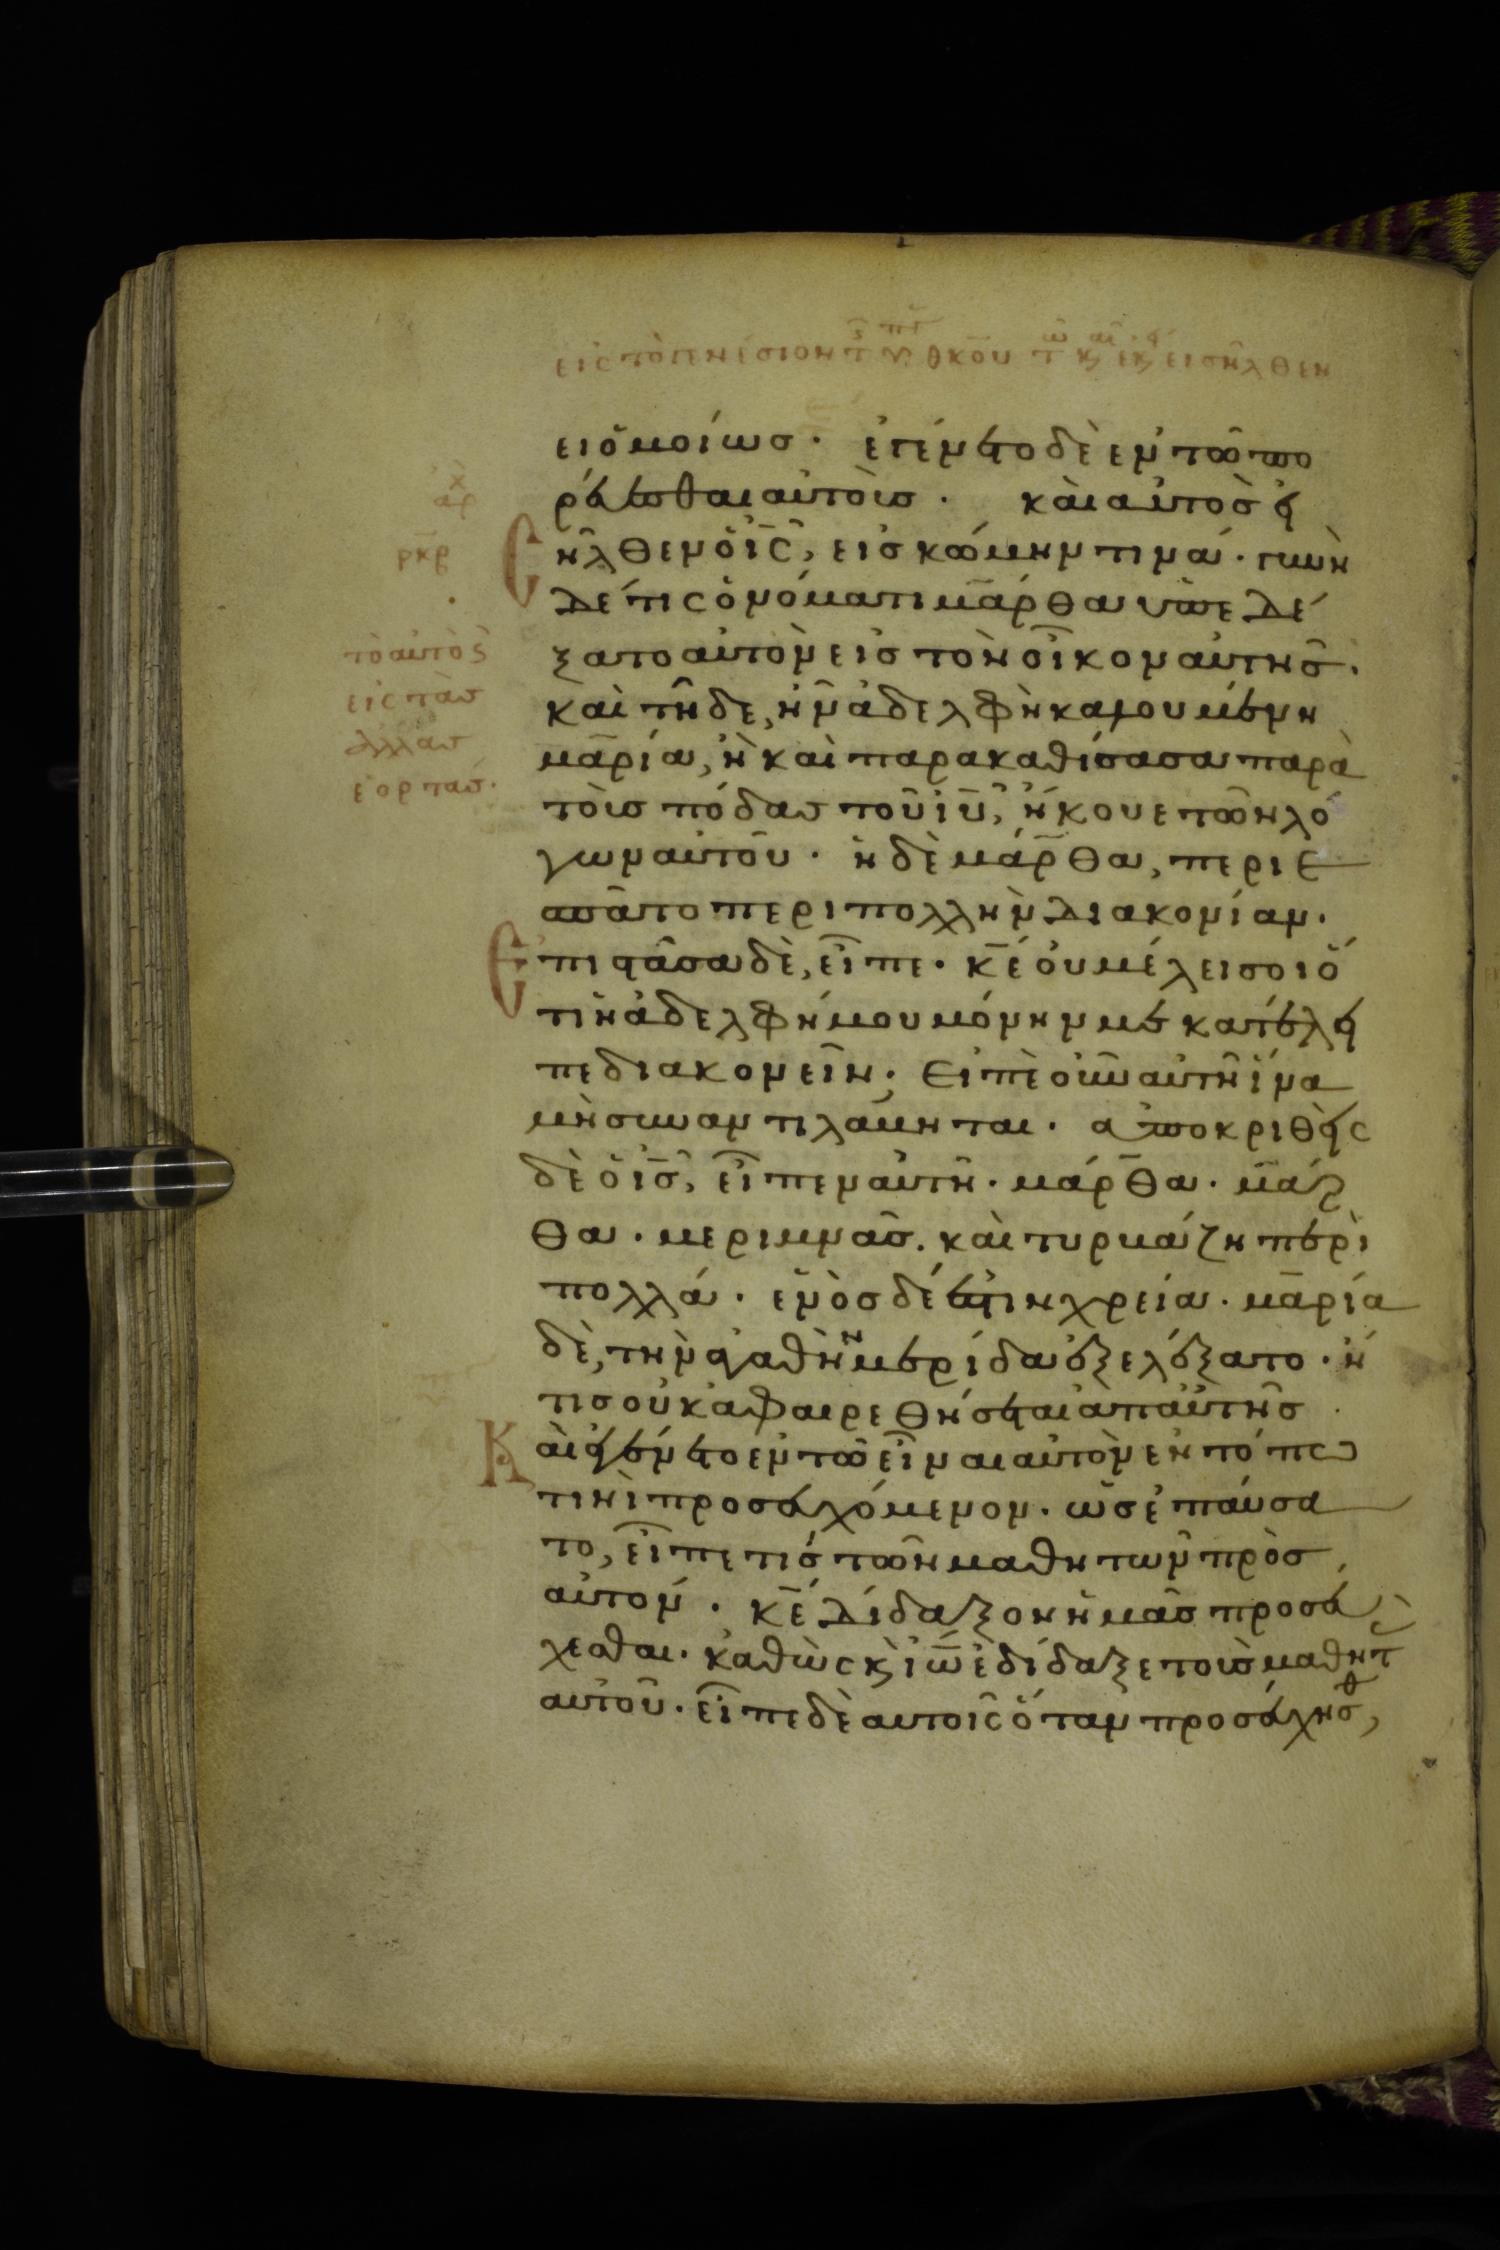 ει ὁμοίωσ · ἐγένετο δὲ ἐν τῶ πο
ρεύεσθαι αὐτοὺσ · καὶ αὐτὸσ εἰ
σῆλθεν ὁ ις̅, εἰσ κώμην τινά · γυνὴ
δέ τις ὀνόματι μάρθα ὑπεδέ
ξατο αὐτὸν εἰσ τὸν οἶκον αὐτῆσ ·
καὶ τῆδε, ἦν ἀδελφὴ καλουμένη
μαρία, ἣ καὶ παρακαθίσασα παρὰ
τοὺσ πόδασ τοῦ ιυ̅, ἤκουε τῶν λό
γων αὐτοῦ · ἡ δὲ μάρθα, περιε
σπᾶτο περι πολλὴν διακονίαν ·
Ἐπιστᾶσα δὲ, εἶπε · κε̅ οὐ μέλει σοι ὅ
τι ἡ ἀδελφή μου μόνην με κατέλει
πε διακονεῖν · εἰπὲ οὖν αὐτῆ ἵνα
μὴ συναντιλάβηται · αποκριθεὶς
δὲ ὁ ισ̅, εἶπεν αὐτῆ · μάρθα · μάρ
θα · μεριμνᾶσ · καὶ τυρβάζη περὶ
πολλά · ἑνὸσ δέ ἐστιν χρεία · μαρία
δὲ, τὴν ἀγαθὴν μερίδα ἐξελέξατο · ἥ
τισ οὐκ ἀφαιρεθήσεται ἀπ αὐτῆσ ·
Καὶ ἐγένετο ἐν τῶ εἶναι αὐτὸν ἐν τόπω
τινὶ προσευχόμενον · ὡσ ἐπαύσα
το, εἶπε τισ τῶν μαθητῶν πρὸσ
αὐτόν · κε̅ δίδαξον ἡμᾶσ προσεύ
χεσθαι · καθὼς κ ιω̅ ἐδίδαξε τοὺσ μαθητ
αὐτοῦ · εἶπε δὲ αυτοῖς ὅταν προσεύχησθ,
τὸ αὐτὸ κ
εἰς τὰσ
ἄλλασ
ἑορτάσ ·